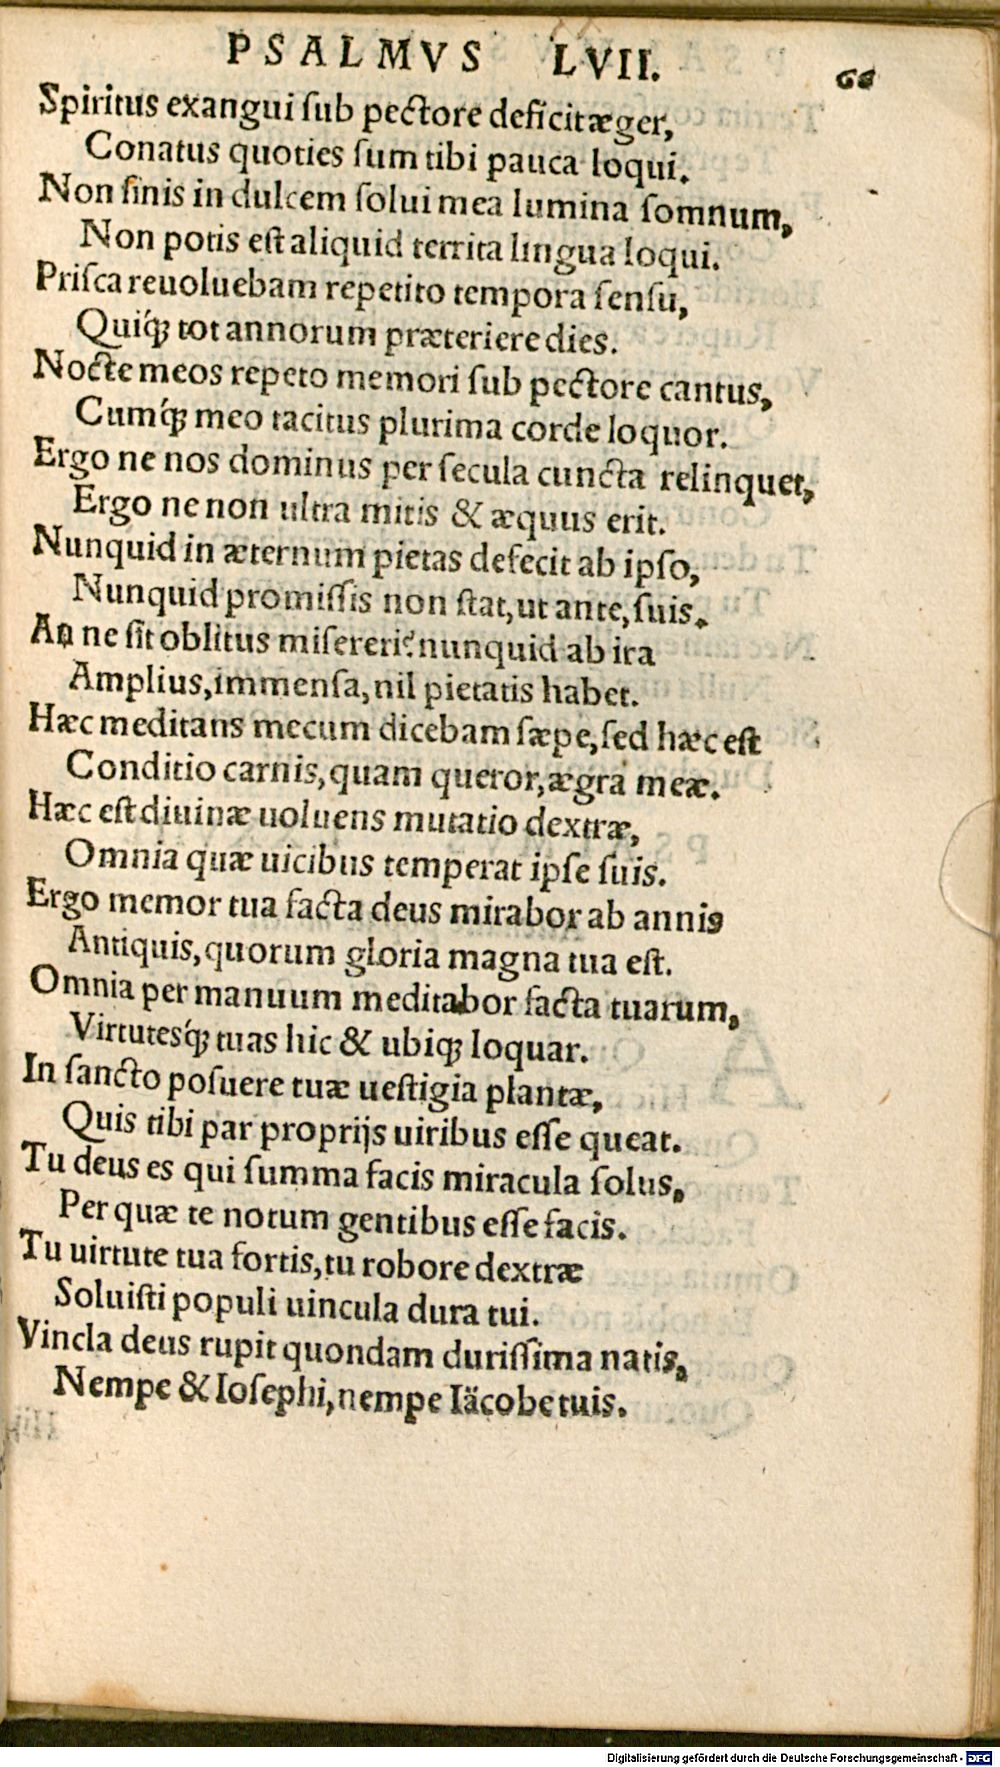 PSALMVS LVII. 66
Spiritus exangui ſub pectore deficit æger,
Conatus quoties ſum tibi pauca loqui.
Non ſinis in dulcem ſolui mea lumina ſomnum,
Non potis eſt aliquid territa lingua loqui.
Priſca reuoluebam repetito tempora ſenſu,
Quiq́ꝫ tot annorum præteriere dies.
Nocte meos repeto memori ſub pectore cantus,
Cumq́ꝫ meo tacitus plurima corde loquor.
Ergo ne nos dominus per ſecula cuncta relinquet,
Ergo ne non ultra mitis & æquus erit.
Nunquid in æternum pietas defecit ab ipſo,
Nunquid promiſſis non ſtat, ut ante, ſuis.
An ne ſit oblitus miſereri? nunquid ab ira
Amplius, immenſa, nil pietatis habet.
Hæc meditans mecum dicebam ſæpe, ſed hæc eſt
Conditio carnis, quam queror, ægra meæ.
Hæc eſt diuinæ uoluens mutatio dextræ,
Omnia quæ uicibus temperat ipſe ſuis.
Ergo memor tua facta deus mirabor ab annis
Antiquis, quorum gloria magna tua eſt.
Omnia per manuum meditabor facta tuarum,
Virtutesq́ꝫ tuas hic & ubiqꝫ loquar.
In ſancto poſuere tuæ ueſtigia plantæ,
Quis tibi par proprijs uiribus eſſe queat.
Tu deus es qui ſumma facis miracula ſolus,
Per quæ te notum gentibus eſſe facis.
Tu uirtute tua fortis, tu robore dextræ
Soluiſti populi uincula dura tui.
Vincla deus rupit quondam duriſſima natis,
Nempe & Ioſephi, nempe Iäcobe tuis.
Digitalisierung gefördert durch die Deutsche Forschungsgemeinschaft - DFG